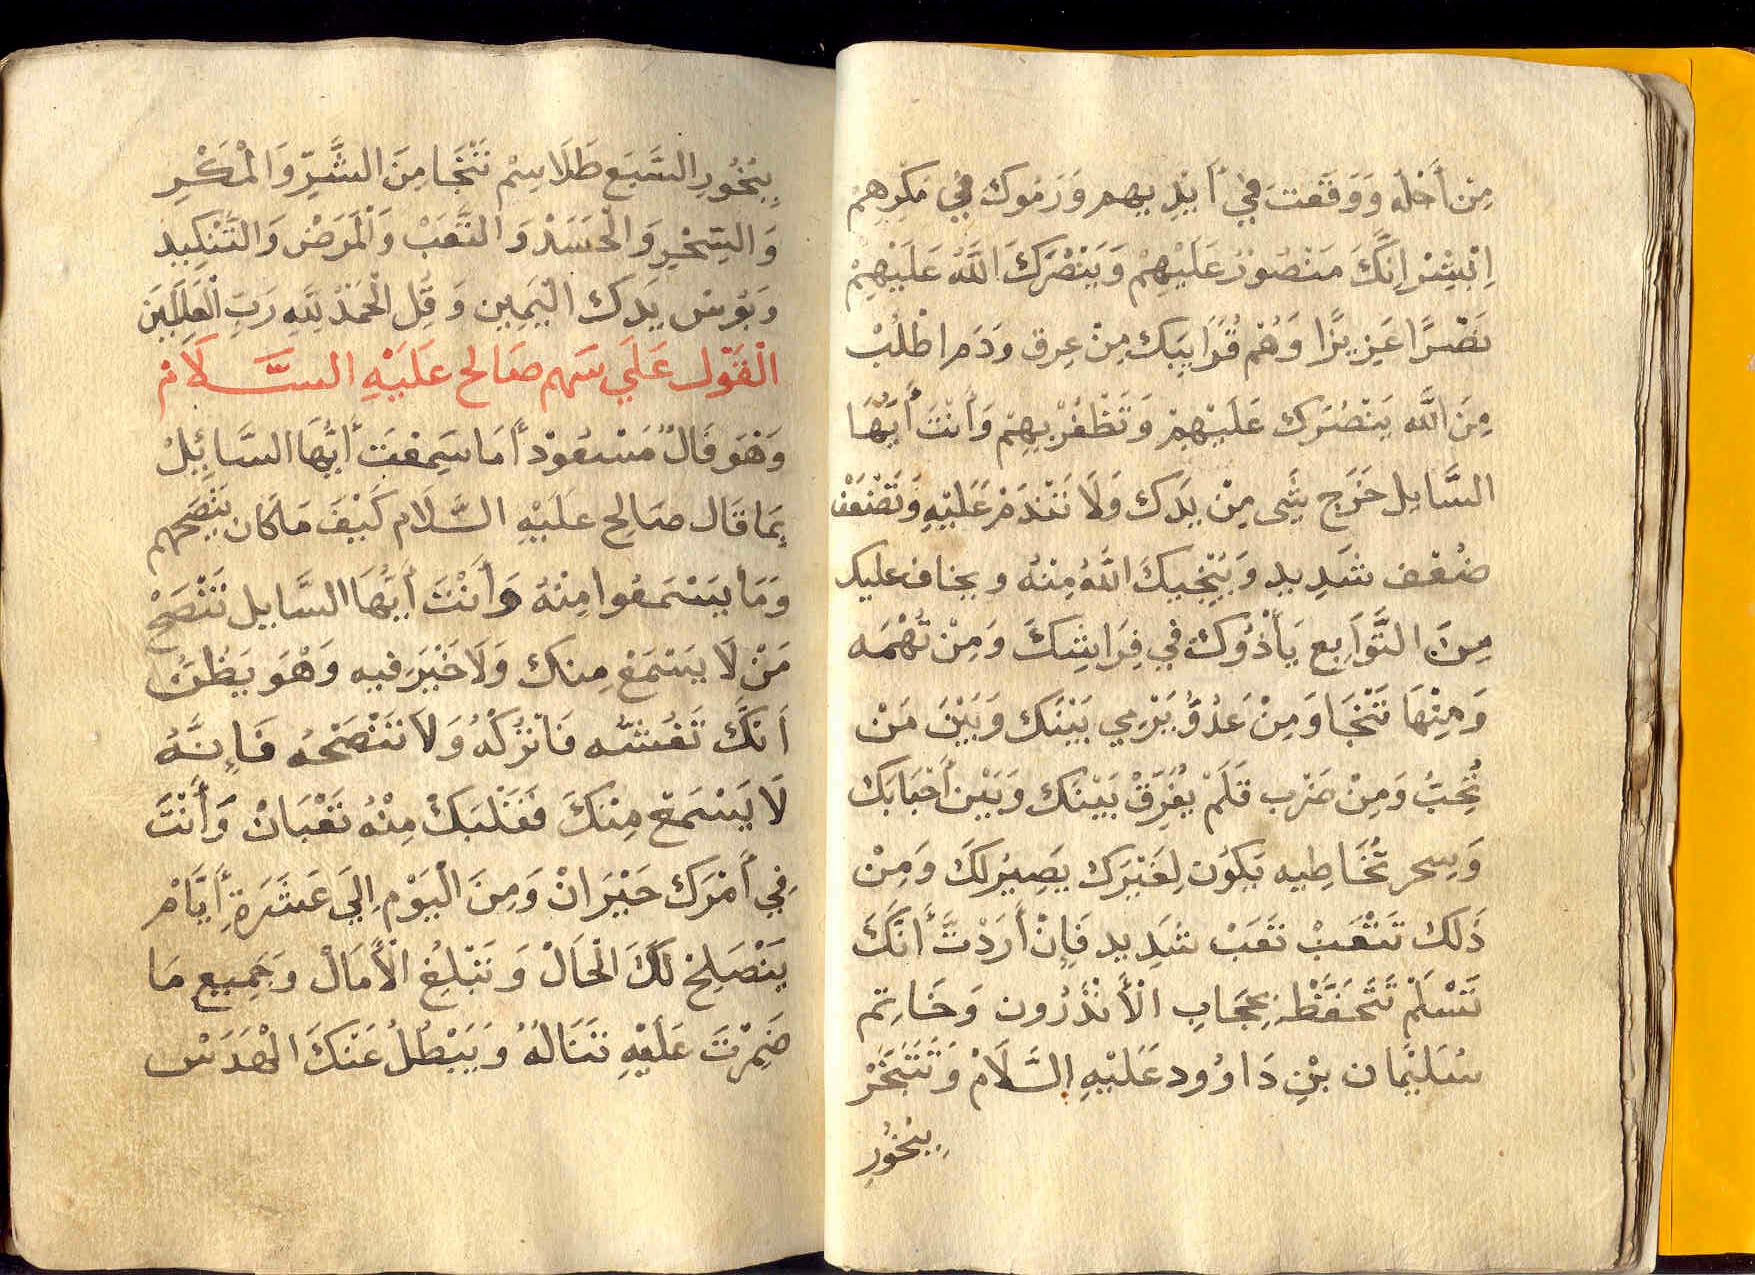 مِنْ أَجْله وَوَقَعتَ فِي أَيْدِيهِم وَرَمُوكَ فِي مَكْرِهِمْ
اِبْشِرْ اِنَّكَ مَنْصُورٌ عَلَيْهِمْ وَيَنْصُرَكَ اللَّهُ عَلَيْهِمْ
نَصْرًا عَزِيزًا وَهُمْ قُرَايِبَك مِنْ عِرق وَدَم اطْلُبْ
مِنَ اللَّه يَنْصُرَك عَلَيْهِمْ وَتَظْفُرْ بِهِمْ وَأَنْتَ أَيُّهَا
السَّايِل خَرَج شَى مِنْ يَدَك وَلَا تَنْدَمْ عَلَيْهِ وَتَضْعَفْ
ضُعْف شَدِيد وَيُنْجِيكَ اللَّهُ مِنْهُ ويخاف عليك
مِنَ التَّوَابِع يَأْذُوكَ فِي فِرَاشِكَ وَمِنْ تُهْمَه
وَمِنْهَا تَنْجَا وَمِنْ عَدُوٍّ يَرْمِي بَيْنَك وَبَيْنَ مَنْ
تُحِبُّ وَمِنْ ضَرْب قَلَمْ يُفَرِّقْ بَيْنَك وَبَيْن أَحْبَابَك
وَسِحر تُخَاطِيه يَكُون لِغَيْرَك يَصِيرْ لَكَ وَمِنْ
ذَلك تَتْعَبْ تَعَبْ شَدِيد فَإِنْ أَرَدْتَّ أَنَّكَ
تَسْلَمْ تَتَحَفَّظْ بِحِجَابِ الْأَنْذَرُون وَخَاتِم
سُلَيْمَان بْنِ دَاوُود عَلَيْهِ السَّلَامْ وَتَتَبَخَّرْ
بِبُخُورِ
بِبُخُورِ السَّبَع طَلَاسِمْ تَنْجَا مِنَ الشَّرِّ وَالْمَكْرِ
وَالسِّحْرِ وَالْحَسَدْ وَالتَّعَبْ وَالْمَرَضْ وَالتَّنْكِيد
وَبُوس يَدَك الْيَمِين وَقُل الْحَمْدُ لِلَّهِ رَبِّ الْعَالَمِينَ
الْقَوْل عَلَي سَهم صَالح عَلَيْهِ السَّلَامْ
وَهْوَ فَالٌ مَسْعُودْ أَمَا سَمِعْتَ أَيُّهَا السَّائِلْ
بِمَا قَال صَالِح عَلَيْهِ السَّلَام كَيْفَ مَا كَان يَنْصَحهم
وَمَا يَسْمَعُوا مِنْهُ وَأَنْتَ أَيُّهَا السَّايِل تَنْصَحْ
مَنْ لَا يَسْمَعْ مِنك وَلَا خَيْرَ فِيه وَهْوَ يَظُنّ
اَنَّكَ تَغُشُّه فَاتْرُكْهُ وَلَا تَنْصَحْهُ فَإِنَّهُ
لَا يَسْمَعْ مِنْكَ فَقَلْبَكْ مِنْهُ تَعْبَانْ وَأَنْتَ
فِي أَمْرَك حَيْرَانْ وَمِنَ الْيَوْمِ اِلَي عَشَرَةِ أَيَّامْ
يَنْصَلِحْ لَكَ الْحَالْ وَتَبْلِغُ الْأَمَالْ وَجَمِيع مَا
ضَمَرْتَ عَلَيْهِ تَنَالُهُ وَيَبْطُلُ عَنْكَ الْهَدَسْ